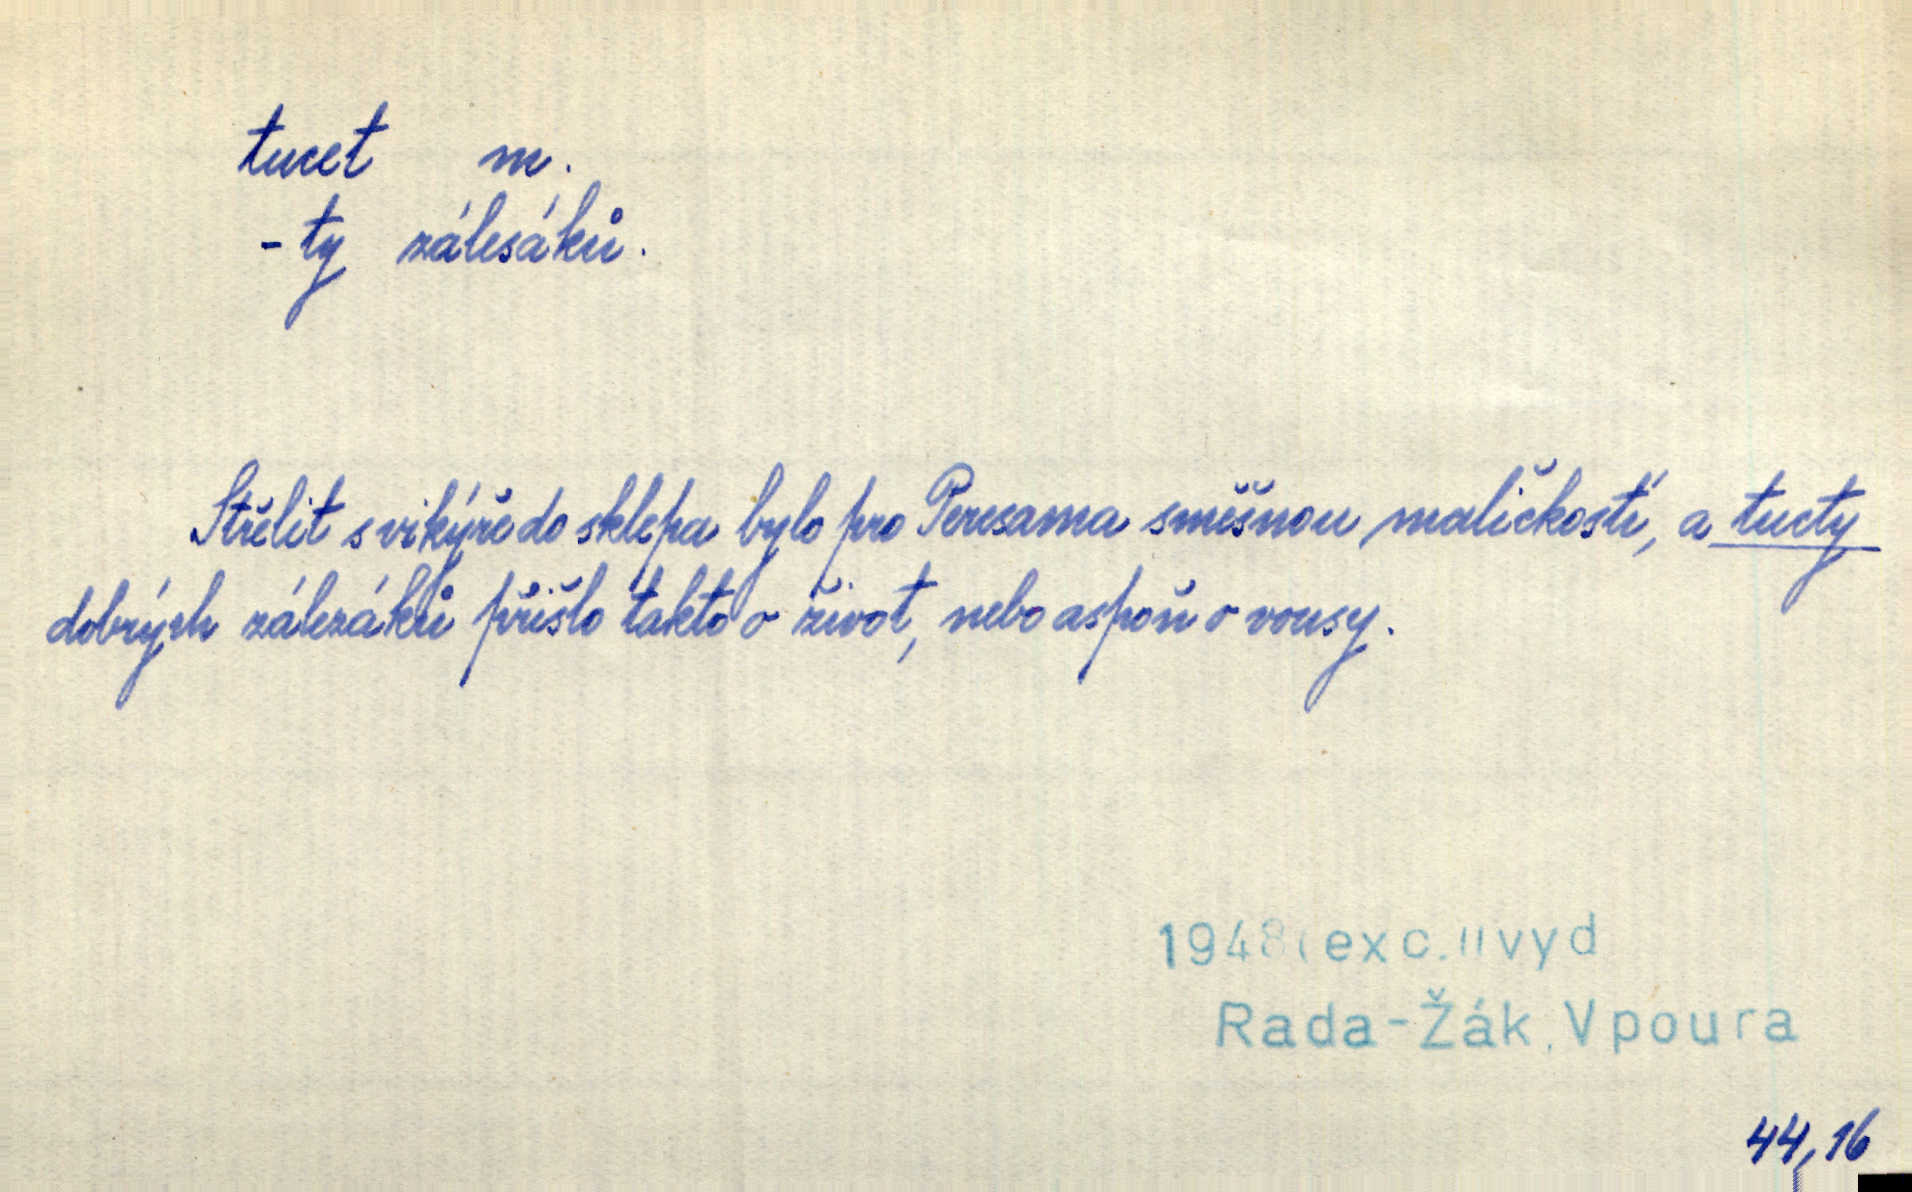 tucet m.
-ty zálesáků.
Střelit s vikýře do sklepa bylo pro Peresama směšnou maličkostí, a tucty
dobrých zálezáků přišlo takto o život, nebo aspoň o vousy.
1948 (exc. II vyd
Rada-Žák, Vpoura
44,16